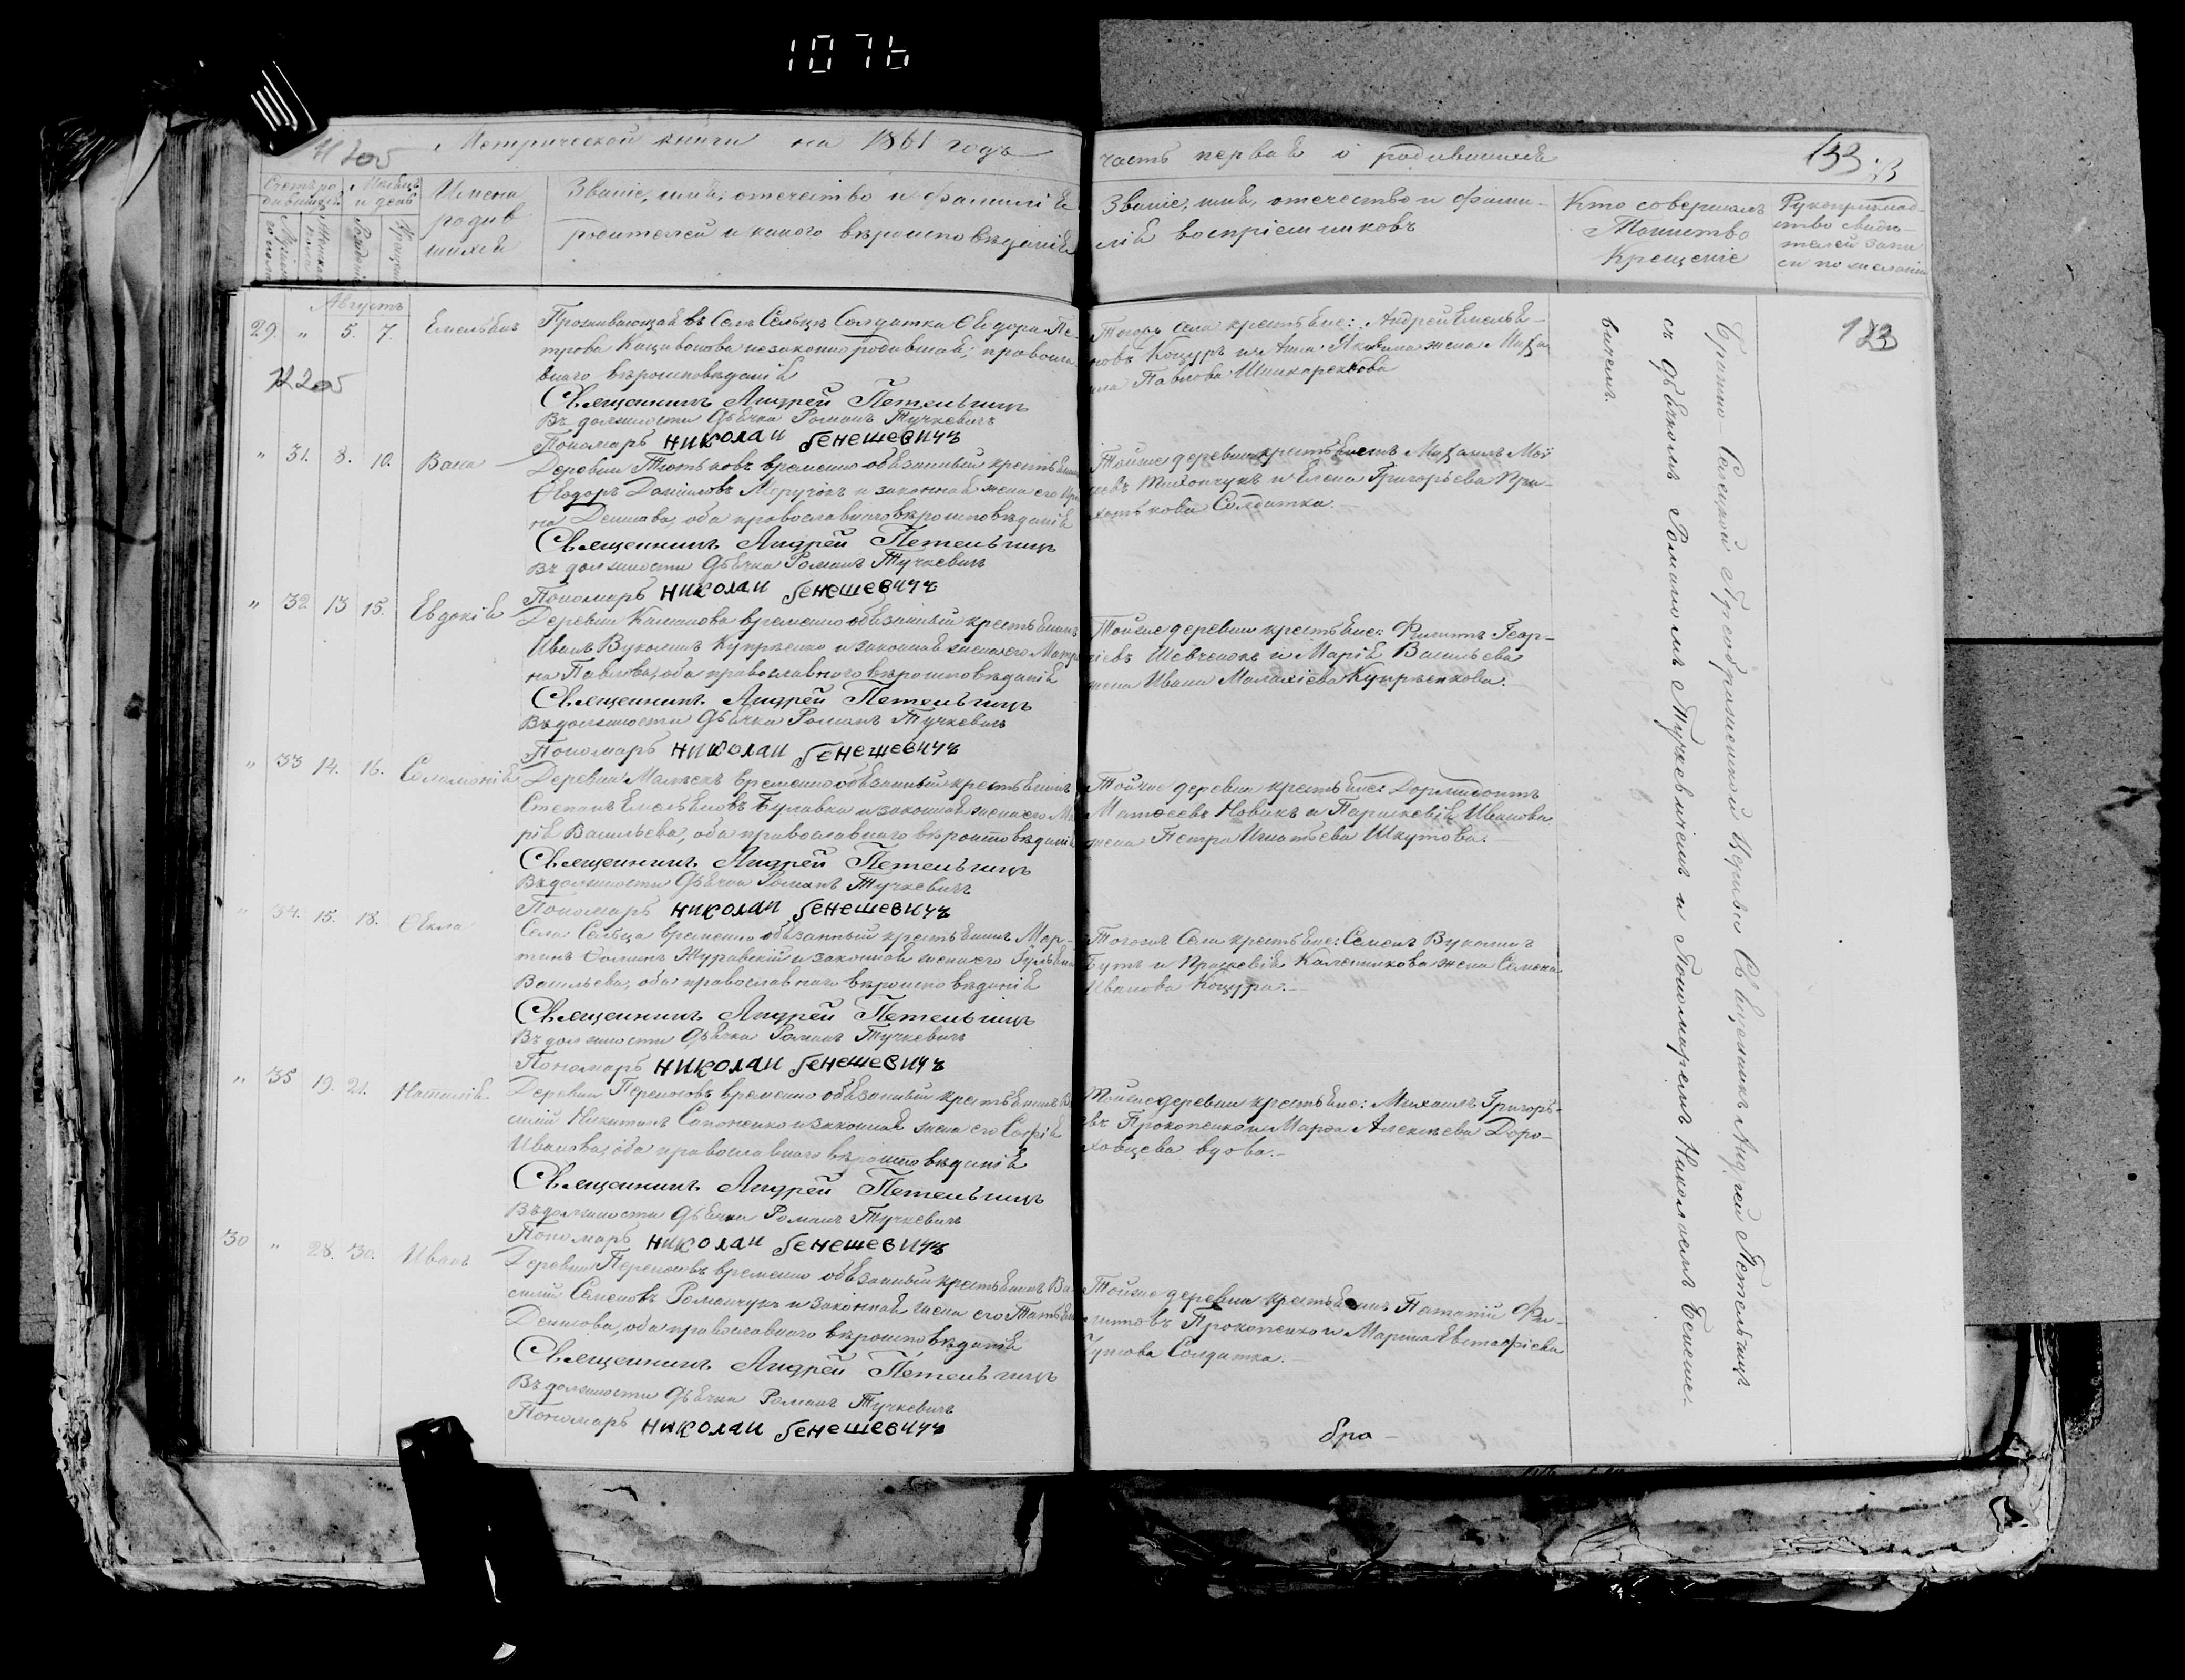 1076
Метрической книги на 1861 годъ
часть первая о родившихся
133
Имена
родив
шихся
Званіе, имя, отечество и фамилія
родителей и какого вѣроисповѣданія
Званіе, имя, отечество и фами-
лія воспріемниковъ
Кто совершалъ
Таинство
Крещеніе
Рукоприклад-
ство свидѣ-
телей запи
си по желанію
Августъ
29. " 5. 7. Емельянъ
Проживающая въ Селѣ Сельцѣ Солдатка Ѳеодора Пе
трова незаконно родившая; правосла
внаго вѣроисповѣданія
Священникъ Андрей Петельчицъ
Въ должности Дьячка Романъ Тучкевичъ
Пономарь Николай Бенешевичъ
Тогожъ села крестьяне: Андрей Емелья-
новъ Коцуръ и Анна Яковлева жена Миха
ила Павлова Шинкоренкова
123
" 31. 8. 10. Васса
Деревни временно обязанный крестьянинъ
Ѳеодоръ Даниловъ и законная жена его Ири
на Денисова, оба православнаго вѣроисповѣданія
Священникъ Андрей Петельчицъ
Въ должности Дьячка Романъ Тучкевичъ
Пономарь Николай Бенешевичъ
Тойже деревни крестьянинъ Михаилъ Мои
сеевъ и Елена Григорьева При-
ходькова Солдатка.
" 32 13 15. Евдокія
Деревни временно обязанный крестьянинъ
Иванъ Вуколинъ Купрѣенко и законная жена его Матре
на Павлова, оба православнаго вѣроисповѣданія
Священникъ Андрей Петельчицъ
Въ должности Дьячка Романъ Тучкевичъ
Пономарь Николай Бенешевичъ
Тойже деревни крестьяне: Филиппъ Геор-
гіевъ Шевченокъ и Марія Васильева
жена Ивана Малахіева Купрѣенкова.
" 33 14. 16. Соломонія
Деревни временно обязанный крестьянинъ
Степанъ Емельяновъ Булавка и законная жена его Ма
рія Васильева, оба православнаго вѣроисповѣданія
Священникъ Андрей Петельчицъ
Въ должности Дьячка Романъ Тучкевичъ
Пономарь Николай Бенешевичъ
Тойже деревни крестьяне: Дормидонтъ
Матѳеевъ Новикъ и Параскевія Иванова
жена Петра Игнатьева Шкутова.
" 34. 15. 18. Ѳекла
Села Сельца временно обязанный крестьянинъ Мар-
тинъ Ѳоминъ Журавскій и законная жена его Гульяна
Васильева, оба православнаго вѣроисповѣданія
Священникъ Андрей Петельчицъ
Въ должности Дьячка Романъ Тучкевичъ
Пономарь Николай Бенешевичъ
Тогожъ Села крестьяне: Семенъ Вуколинъ
Бутъ и Праскевія Каленикова жена Семена
Иванова Коцура.
" 35 19. 21. Наталія
Деревни временно обязанный крестьянинъ Ва
силій Никитинъ Сапоненко и законная жена его Софія
Иванова, оба православнаго вѣроисповѣданія
Священникъ Андрей Петельчицъ
Въ должности Дьячка Романъ Тучкевичъ
Пономарь Николай Бенешевичъ
Тойже деревни крестьяне: Михаилъ Григорь-
евъ Прокопенко и Марфа Алексѣева Доро-
ховцева вдова.
30 " 28. 30. Иванъ
Деревни временно обязанный крестьянинъ Ва
силій Семеновъ Романчукъ и законная жена его Татьяна
Денисова, оба православнаго вѣроисповѣданія
Священникъ Андрей Петельчицъ
Въ должности Дьячка Романъ Тучкевичъ
Пономарь Николай Бенешевичъ
Тойже деревни крестьянинъ Патапій Фи-
липповъ Прокопенко и Марина Евстафіева
Солдатка.
Преображенской Церкви Священникъ Андрей Петельчицъ
съ Дьячкомъ Романомъ Тучкевичемъ и Пономаремъ Николаемъ Бенеше-
вичемъ.
бра-